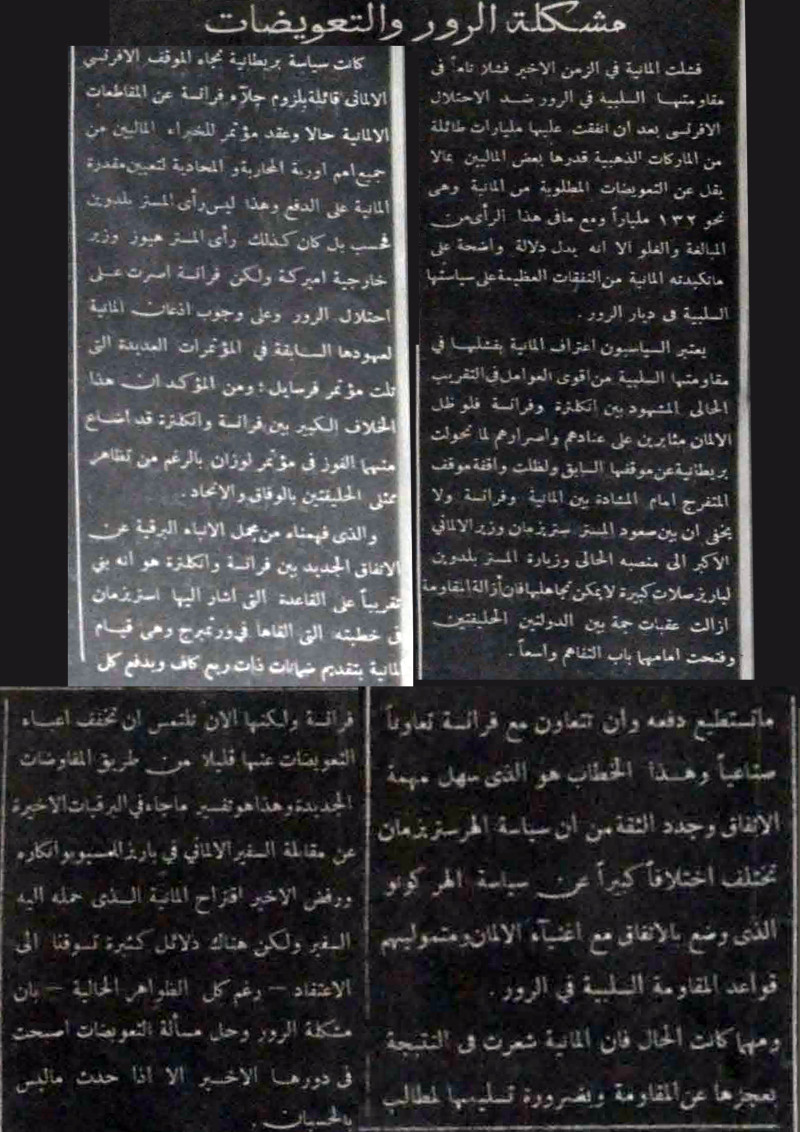 مشكلة الرور والتعويضات
فشلت المانية في الزمن الاخير فشلا تاماً في
مقاومتها السلبية في الرور ضد الاحتلال
الافرنسي بعد ان انفقت عليها مليارات طائلة
من الماركات الذهبية قدرها بعض الماليين بمالا
يقل عن التعويضات المطلوبة من المانية وهى
نحو ١٣٢ ملياراً ومع مافى هذا الرأى من
المبالغة والغلو الا انه يدل دلالة واضحة على
ماتكبدته المانية من النفقات العظيمة على سياستها
السلبية فى ديار الرور .
يعتبر السياسيون اعتراف المانية بفشلها في
مقاومتها السلبية من اقوى العوامل فى التقريب
الحالى المشهود بين انكلترة وفرانسة فلو ظل
الالمان مثابرين على عنادهم واصرارهم لما تحولت
بريطانية عن موقفها السابق ولظلت واقفة موقف
المتفرج امام المشادة بين المانية وفرانسة ولا
يخفى ان بين صعود المستر ستريزمان وزير الالماني
الاكبر الى منصبه الحالى وزيارة المستر بلدوين
لباريز صلات كبيرة لايمكن تجاهلها فان أزالة المقاومة
ازالت عقبات جمة بين الدولتين الحليفتين
وفتحت امامهما باب التفاهم واسعاً .
كانت سياسة بريطانية تجاه الموقف الافرنسي
الالمانى قائلة بلزوم جلاء فرانسة عن المقاطعات
الالمانية حالا وعقد مؤتمر للخبراء الماليين من
جميع امم اوربة المحاربة و المحادية لتعيين مقدرة
المانية على الدفع وهذا ليس رأى المستر بلدوين
فحسب بل كان كذلك رأى المستر هيوز وزير
خارجية اميركة ولكن فرانسة اصرت على
احتلال الرور وعلى وجوب اذعان المانية
لعهودها السابقة في المؤتمرات العديدة التى
تلت مؤتمر فرسايل ؛ ومن المؤكد ان هذا
الخلاف الكبير بين فرانسة وانكلترة قد اضاع
منهما الفوز فى مؤتمر لوزان بالرغم من تظاهر
ممثلى الحليفتين بالوفاق والاتحاد .
والذى فهمناه من مجمل الانباء البرقية عن
الاتفاق الجديد بين فرانسة وانكلترة هو انه بني
تقريباً على القاعدة التى اشار اليها استريزمان
فى خطبته التى القاها فى ورتمبرج وهى قيام
المانية بتقديم ضمانات ذات ريع كاف وبدفع كل
ماتستطيع دفعه وان تتعاون مع فرانسة تعاوناً
صناعياً وهذا الخطاب هو الذى سهل مهمة
الاتفاق وجدد الثقة من ان سياسة الهر ستريزمان
تختلف اختلافاً كبيراً عن سياسة الهر كونو
الذى وضع بالاتفاق مع اغنياء الالمان ومتموليهم
قواعد المقاومة السلبية في الرور .
ومهما كانت الحال فان المانية شعرت فى النتيجة
بعجزها عن المقاومة وبضرورة تسليمها لمطالب
فرانسة ولكنها الان تلتمس ان تخفف اعباء
التعويضات عنها قليلا من طريق المفاوضات
الجديدة وهذا هو تفسير ماجاء في البرقيات الاخيرة
عن مقابلة السفير الالماني في باريز للمسيو بوانكاره
ورفض الاخير اقتراح المانية الذى حمله اليه
السفير ولكن هناك دلائل كثيرة تسوقنا الى
الاعتقاد — رغم كل الظواهر الحالية — بان
مشكلة الرور وحل مسألة التعويضات اصبحت
فى دورها الاخير الا اذا حدث ماليس
بالحسبان .